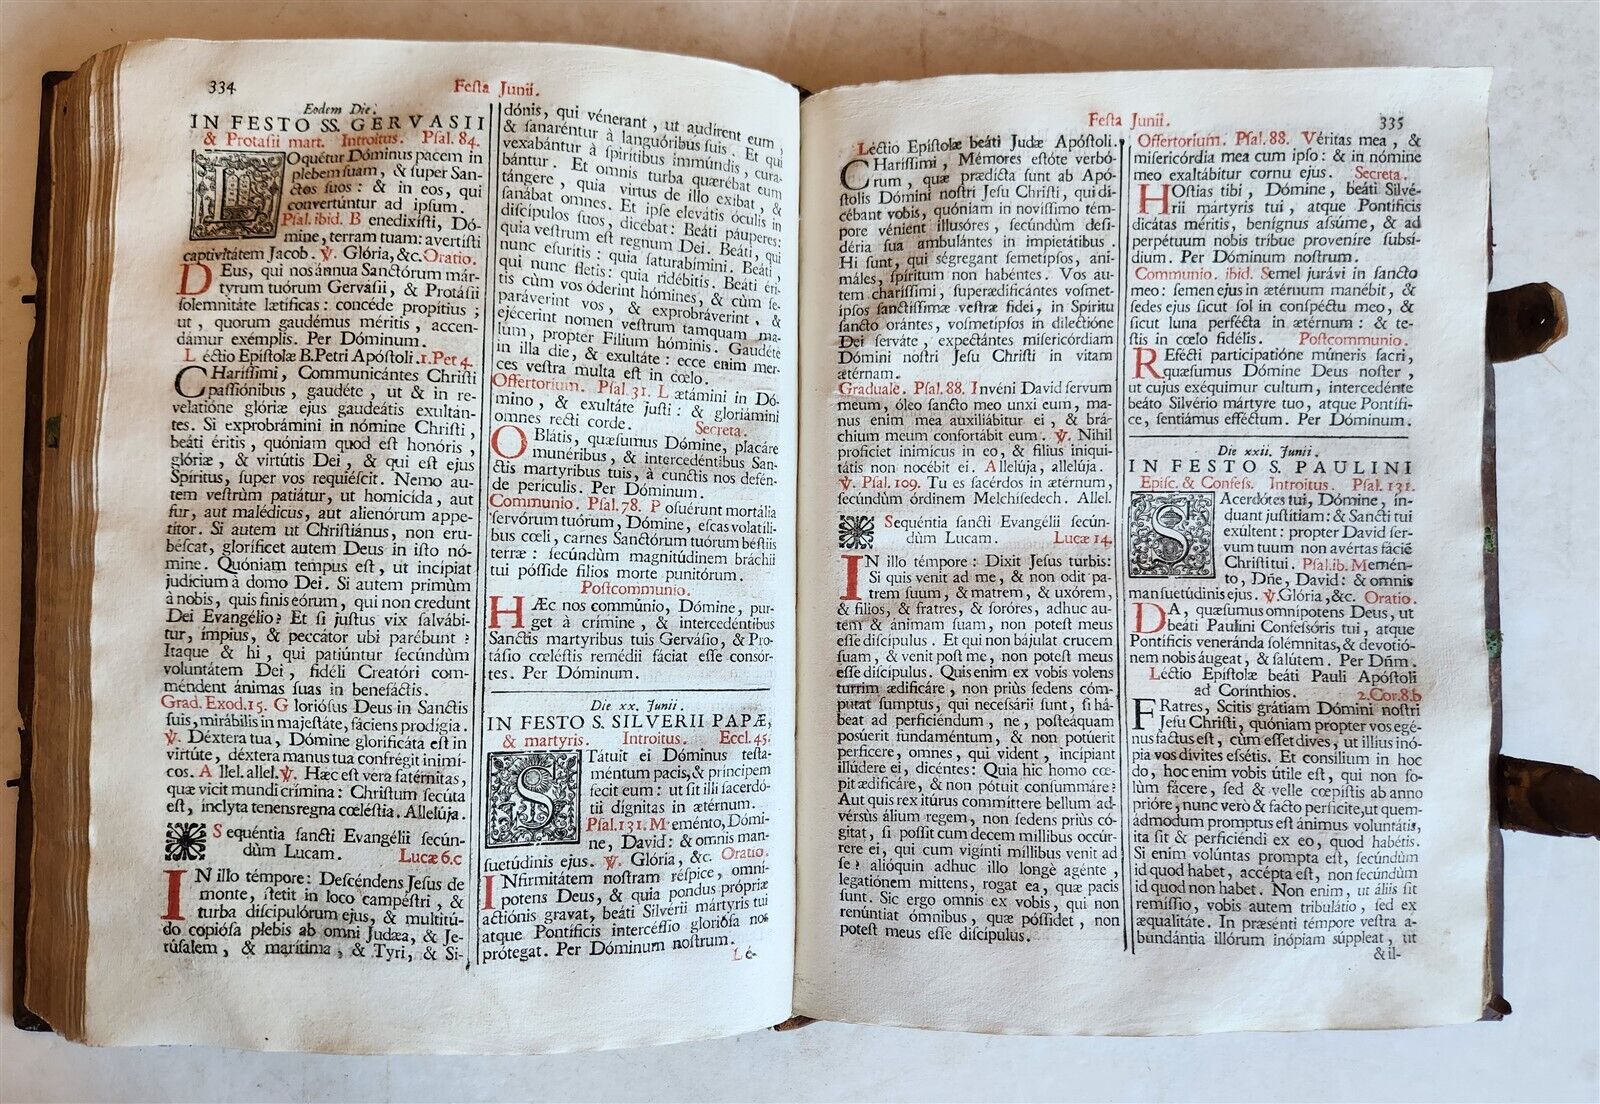 334
Festa Junii.
Eodem Die.
IN FESTO SS. GERVASII
& Protasii mart. Introitus. Psal. 84.
LOquétur Dóminus pacem in
plebem suam, & super San-
ctos suos: & in eos, qui
convertúntur ad ipsum.
Psal. ibid. Benedixísti, Dó-
mine, terram tuam: avertísti
captivitátem Jacob. ℣. Glória, &c. Oratio.
DEus, qui nos ánnua Sanctórum már-
tyrum tuórum Gervásii, & Protásii
solemnitáte lætíficas: concéde propítius;
ut, quorum gaudémus méritis, accen-
dámur exémplis. Per Dóminum.
Léctio Epístolæ B. Petri Apóstoli. 1. Pet 4.
CHaríssimi, Communicántes Christi
passiónibus, gaudéte, ut & in re-
velatióne glóriæ ejus gaudeátis exultán-
tes. Si exprobrámini in nómine Christi,
beáti éritis, quóniam quod est honóris,
glóriæ, & virtútis Dei, & qui est ejus
Spíritus, super vos requiéscit. Nemo au-
tem vestrûm patiátur, ut homicída, aut
fur, aut malédicus, aut alienórum appe-
titor. Si autem ut Christiánus, non eru-
béscat, gloríficet autem Deus in isto nó-
mine. Quóniam tempus est, ut incípiat
judícium à domo Dei. Si autem primùm
à nobis, quis finis eórum, qui non credunt
Dei Evangélio? Et si justus vix salvábi-
tur, ímpius, & peccátor ubi parébunt?
Itaque & hi, qui patiúntur secúndùm
voluntátem Dei, fidéli Creatóri com-
méndent ánimas suas in benefáctis.
Grad. Exod. 15. Gloriósus Deus in Sanctis
suis, mirábilis in majestáte, fáciens prodígia.
℣. Déxtera tua, Dómine glorificáta est in
virtúte, déxtera manus tua confrégit inimí-
cos. Allel. allel. ℣. Hæc est vera fatérnitas,
quæ vicit mundi crímina: Christum secúta
est, ínclyta tenens regna cœléstia. Allelúja.
Sequéntia sancti Evangélii secún-
dùm Lucam. Lucæ 6. c
IN illo témpore: Descéndens Jesus de
monte, stetit in loco campéstri, &
turba discipulórum ejus, & multitú-
do copiósa plebis ab omni Judæa, & Je-
rúsalem, & marítima, & Tyri, & Si-
dónis, qui vénerant, ut audírent eum,
& sanaréntur à languóribus suis. Et qui
vexabántur à spirítibus immúndis, cura-
bántur. Et omnis turba quærébat eum
tángere, quia virtus de illo exíbat, &
sanábat omnes. Et ipse elevátis óculis in
discípulos suos, dicébat: Beáti páuperes:
quia vestrum est regnum Dei. Beáti, qui
nunc esurítis: quia saturabímini. Beáti,
qui nunc fletis: quia ridébitis. Beáti éri-
tis cùm vos óderint hómines, & cùm se-
paráverint vos, & exprobráverint, &
ejécerint nomen vestrum tamquam ma-
lum, propter Fílium hóminis. Gaudéte
in illa die, & exultáte: ecce enim mer-
ces vestra multa est in cœlo.
Offertorium. Psal. 31. Lætámini in Dó-
mino, & exultáte justi: & gloriámini
omnes recti corde. Secreta.
OBlátis, quæsumus Dómine, placáre
munéribus, & intercedéntibus San-
ctis martýribus tuis, à cunctis nos defén-
de perículis. Per Dóminum.
Communio. Psal. 78. Posuérunt mortália
servórum tuórum, Dómine, escas volatíli-
bus cœli, carnes Sanctórum tuórum béstiis
terræ: secúndùm magnitúdinem bráchii
tui pósside fílios morte punitórum.
Postcommunio.
HÆc nos commúnio, Dómine, pur-
get à crímine, & intercedéntibus
Sanctis martýribus tuis Gervásio, & Pro-
tásio cœléstis remédii fáciat esse consór-
tes. Per Dóminum.
Die xx. Junii.
IN FESTO S. SILVERII PAPÆ,
& martyris. Introitus. Eccl. 45.
STátuit ei Dóminus testa-
méntum pacis, & príncipem
fecit eum: ut sit illi sacerdó-
tii dígnitas in ætérnum.
Psal. 131. Meménto, Dómi-
ne, David: & omnis man-
suetúdinis ejus. ℣. Glória, &c. Oratio.
INfirmitátem nostram réspice, omní-
potens Deus, & quia pondus própriæ
actiónis gravat, beáti Silvérii mártyris tui
atque Pontíficis intercéssio gloriósa nos
prótegat. Per Dóminum nostrum.
Lé-
Festa Junii.
335
Léctio Epístolæ beáti Judæ Apóstoli.
CHaríssimi, Mémores estóte verbó-
rum, quæ prædícta sunt ab Apó-
stolis Dómini nostri Jesu Christi, qui di-
cébant vobis, quóniam in novíssimo tém-
pore vénient illusóres, secúndùm desi-
déria sua ambulántes in impietátibus.
Hi sunt, qui ségregant semetípsos, ani-
máles, spíritum non habéntes. Vos au-
tem charíssimi, superædificántes vosmet-
ípsos sanctíssimæ vestræ fidei, in Spíritu
sancto orántes, vosmetípsos in dilectióne
Dei serváte, expectántes misericórdiam
Dómini nostri Jesu Christi in vitam
ætérnam.
Graduale. Psal. 88. Invéni David servum
meum, óleo sancto meo unxi eum, ma-
nus enim mea auxiliábitur ei, & brá-
chium meum confortábit eum. ℣. Nihil
profíciet inimícus in eo, & fílius iniqui-
tátis non nocébit ei. Allelúja, allelúja.
℣. Psal. 109. Tu es sacérdos in ætérnum,
secúndum órdinem Melchísedech. Allel.
Sequéntia sancti Evangélii secún-
dùm Lucam. Lucæ 14.
IN illo témpore: Dixit Jesus turbis:
Si quis venit ad me, & non odit pa-
trem suum, & matrem, & uxórem,
& fílios, & fratres, & soróres, adhuc au-
tem & ánimam suam, non potest meus
esse discípulus. Et qui non bájulat crucem
suam, & venit post me, non potest meus
esse discípulus. Quis enim ex vobis volens
turrim ædificáre, non priùs sedens cóm-
putat sumptus, qui necessárii sunt, si há-
beat ad perficiéndum, ne, posteáquam
posúerit fundaméntum, & non potúerit
perfícere, omnes, qui vident, incípiant
illúdere ei, dicéntes: Quia hic homo cœ-
pit ædificáre, & non pótuit consummáre?
Aut quis rex itúrus commíttere bellum ad-
vérsùs álium regem, non sedens priùs có-
gitat, si possit cum decem míllibus occúr-
rere ei, qui cum vigínti míllibus venit ad
se? alióquin adhuc illo longè agénte,
legatiónem mittens, rogat ea, quæ pacis
sunt. Sic ergo omnis ex vobis, qui non
renúntiat ómnibus, quæ póssidet, non
potest meus esse discípulus.
Offertorium. Psal. 88. Véritas mea, &
misericórdia mea cum ipso: & in nómine
meo exaltábitur cornu ejus. Secreta.
HOstias tibi, Dómine, beáti Silvé-
rii mártyris tui, atque Pontíficis
dicátas méritis, benígnus assúme, & ad
perpétuum nobis tríbue proveníre subsí-
dium. Per Dóminum nostrum.
Communio. ibid. Semel jurávi in sancto
meo: semen ejus in ætérnum manébit, &
sedes ejus sicut sol in conspéctu meo, &
sicut luna perfécta in ætérnum: & te-
stis in cœlo fidélis. Postcommunio.
REfécti participatióne múneris sacri,
quæsumus Dómine Deus noster,
ut cujus exéquimur cultum, intercedénte
beáto Silvério mártyre tuo, atque Pontífi-
ce, sentiámus efféctum. Per Dóminum.
Die xxii. Junii.
IN FESTO S. PAULINI
Episc. & Confess. Introitus. Psal. 131.
SAcerdótes tui, Dómine, ín-
duant justítiam: & Sancti tui
exúltent: propter David ser-
vum tuum non avértas fáciē
Christi tui. Psal. ib. Memén-
to, Dñe, David: & omnis
mansuetúdinis ejus. ℣. Glória, &c. Oratio.
DA, quæsumus omnípotens Deus, ut
beáti Paulíni Confessóris tui, atque
Pontíficis veneránda solémnitas, & devotió-
nem nobis áugeat, & salútem. Per Dñm.
Léctio Epístolæ beáti Pauli Apóstoli
ad Corínthios. 2. Cor. 8. b
FRatres, Scitis grátiam Dómini nostri
Jesu Christi, quóniam propter vos egé-
nus factus est, cùm esset dives, ut illíus inó-
pia vos dívites essétis. Et consílium in hoc
do, hoc enim vobis útile est, qui non so-
lùm fácere, sed & velle cœpístis ab anno
prióre, nunc verò & facto perfícite, ut quem-
ádmodum promptus est ánimus voluntátis,
ita sit & perficiéndi ex eo, quod habétis.
Si enim volúntas prompta est, secúndùm
id quod habet, accépta est, non secúndùm
id quod non habet. Non enim, ut áliis sit
remíssio, vobis autem tribulátio, sed ex
æqualitáte. In præsénti témpore vestra a-
bundántia illórum inópiam súppleat, ut
& il-